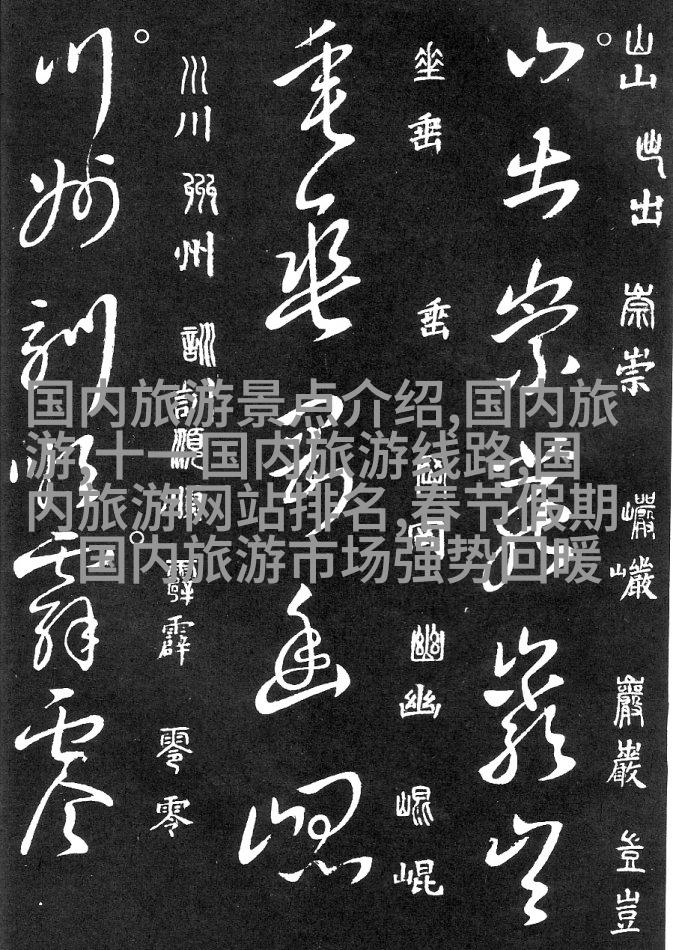 国内旅游景点介绍,国内旅
游,十一国内旅游线路,国
内旅游网站排名,春节假期
国内旅游市场强势回暖
山山出出崇崇巖巖巖豈豈
山出崇豈
垂垂幽幽崐崐
垂幽崐
川川州州訓訓順霹霹零零
川州訓順霹零